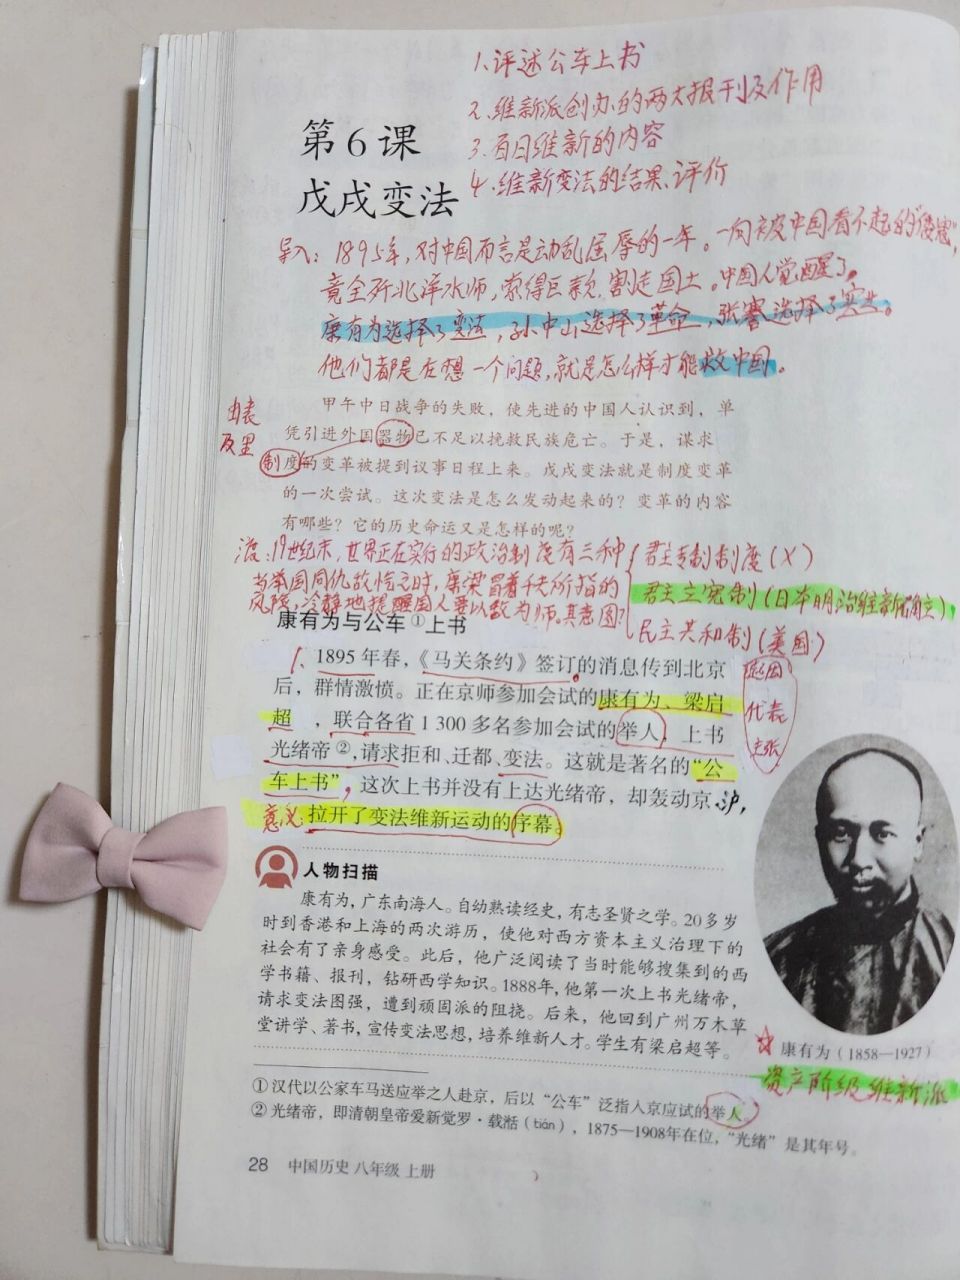 1、评述公车上书
2、维新派创办的两大报刊及作用
3、百日维新的内容
4、维新变法的结果、评价
第6课
戊戌变法
导入：1895年，对中国而言是动乱屈辱的一年。一向被中国看不起的“倭寇”，
竟全歼北洋水师，索得巨款，割走国土。中国人觉醒了。
康有为选择了变法，孙中山选择了革命，张謇选择了实业。
他们都是在想一个问题，就是怎么样才能救中国。
由表
及里
甲午中日战争的失败，使先进的中国人认识到，单
凭引进外国器物已不足以挽救民族危亡。于是，谋求
制度的变革被提到议事日程上来。戊戌变法就是制度变革
的一次尝试。这次变法是怎么发动起来的？变革的内容
有哪些？它的历史命运又是怎样的呢？
渡：19世纪末，世界正在实行的政治制度有三种
君主专制制度（×）
君主立宪制（日本明治维新后确立）
民主共和制（美国）
当举国同仇敌忾之时，康梁冒着千夫所指的
风险，冷静地提醒国人要以敌为师。其意图？
康有为与公车①上书
1、1895年春，《马关条约》签订的消息传到北京
后，群情激愤。正在京师参加会试的康有为、梁启
超，联合各省1 300多名参加会试的举人，上书
光绪帝②，请求拒和、迁都、变法。这就是著名的“公
车上书”，这次上书并没有上达光绪帝，却轰动京沪，
意义：拉开了变法维新运动的序幕。
起因
代表
主张
人物扫描
康有为，广东南海人。自幼熟读经史，有志圣贤之学。20多岁
时到香港和上海的两次游历，使他对西方资本主义治理下的
社会有了亲身感受。此后，他广泛阅读了当时能够搜集到的西
学书籍、报刊，钻研西学知识。1888年，他第一次上书光绪帝，
请求变法图强，遭到顽固派的阻挠。后来，他回到广州万木草
堂讲学、著书，宣传变法思想，培养维新人才。学生有梁启超等。
康有为（1858—1927）
资产阶级维新派
①汉代以公家车马送应举之人赴京，后以“公车”泛指入京应试的举人。
②光绪帝，即清朝皇帝爱新觉罗·载湉（tián），1875—1908年在位，“光绪”是其年号。
28 中国历史 八年级 上册